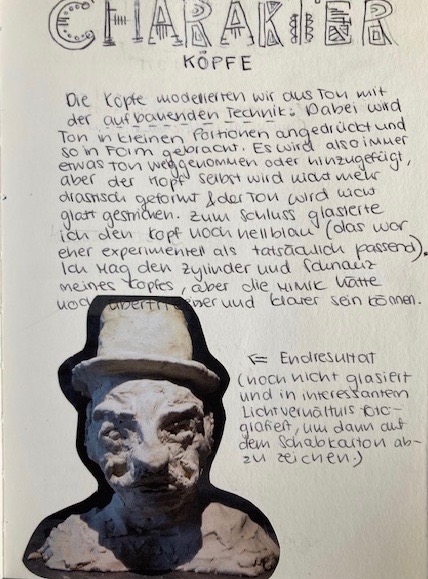 CHARAKTER
KÖPFE
Die Köpfe modellierten wir aus Ton mit
der aufbauenden Technik: Dabei wird
Ton in kleinen Portionen angedrückt und
so in Form gebracht. Es wird also immer
etwas Ton weggenommen oder hinzugefügt,
aber der Kopf selbst wird nicht mehr
drastisch geformt & der Ton wird nicht
glatt gestrichen. Zum Schluss glasierte
ich den Kopf noch hellblau (das war
eher experimentell als tatsächlich passend).
Ich mag den Zylinder und Schnauz
meines Kopfes, aber die Mimik hätte
noch und klarer sein können.
⇐ Endresultat
(noch nicht glasiert
und in interessantem
Lichtverhältnis foto-
grafiert, um dann auf
dem Schabkarton ab-
zu zeichen.)